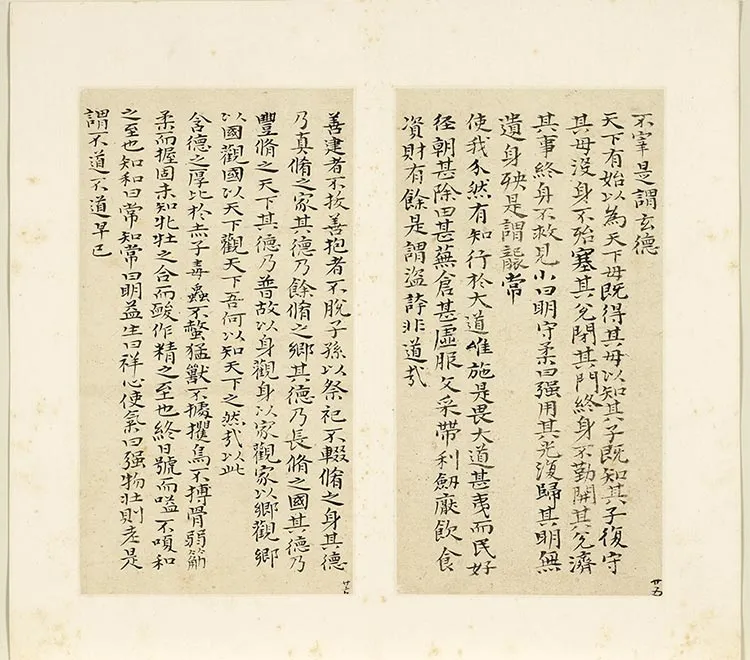 不宰是謂玄德
天下有始以為天下母既得其母以知其子既知其子復守
其母没身不殆塞其兌閉其門終身不勤開其兌濟
其事終身不救見小曰明守柔曰强用其光復歸其明無
遺身殃是謂襲常
使我介然有知行於大道惟施是畏大道甚夷而民好
徑朝甚除田甚蕪倉甚虛服文采帶利劒厭飲食
資財有餘是謂盜誇非道哉
廿五
善建者不拔善抱者不脫子孫以祭祀不輟脩之身其德
乃真脩之家其德乃餘脩之鄉其德乃長脩之國其德乃
豐脩之天下其德乃普故以身觀身以家觀家以鄉觀鄉
以國觀國以天下觀天下吾何以知天下之然哉以此
含德之厚比於赤子毒蟲不螫猛獸不據攫鳥不搏骨弱筋
柔而握固未知牝牡之合而酸作精之至也終日號而嗌不嗄和
之至也知和曰常知常曰明益生曰祥心使氣曰强物壯則老是
謂不道不道早已
廿六